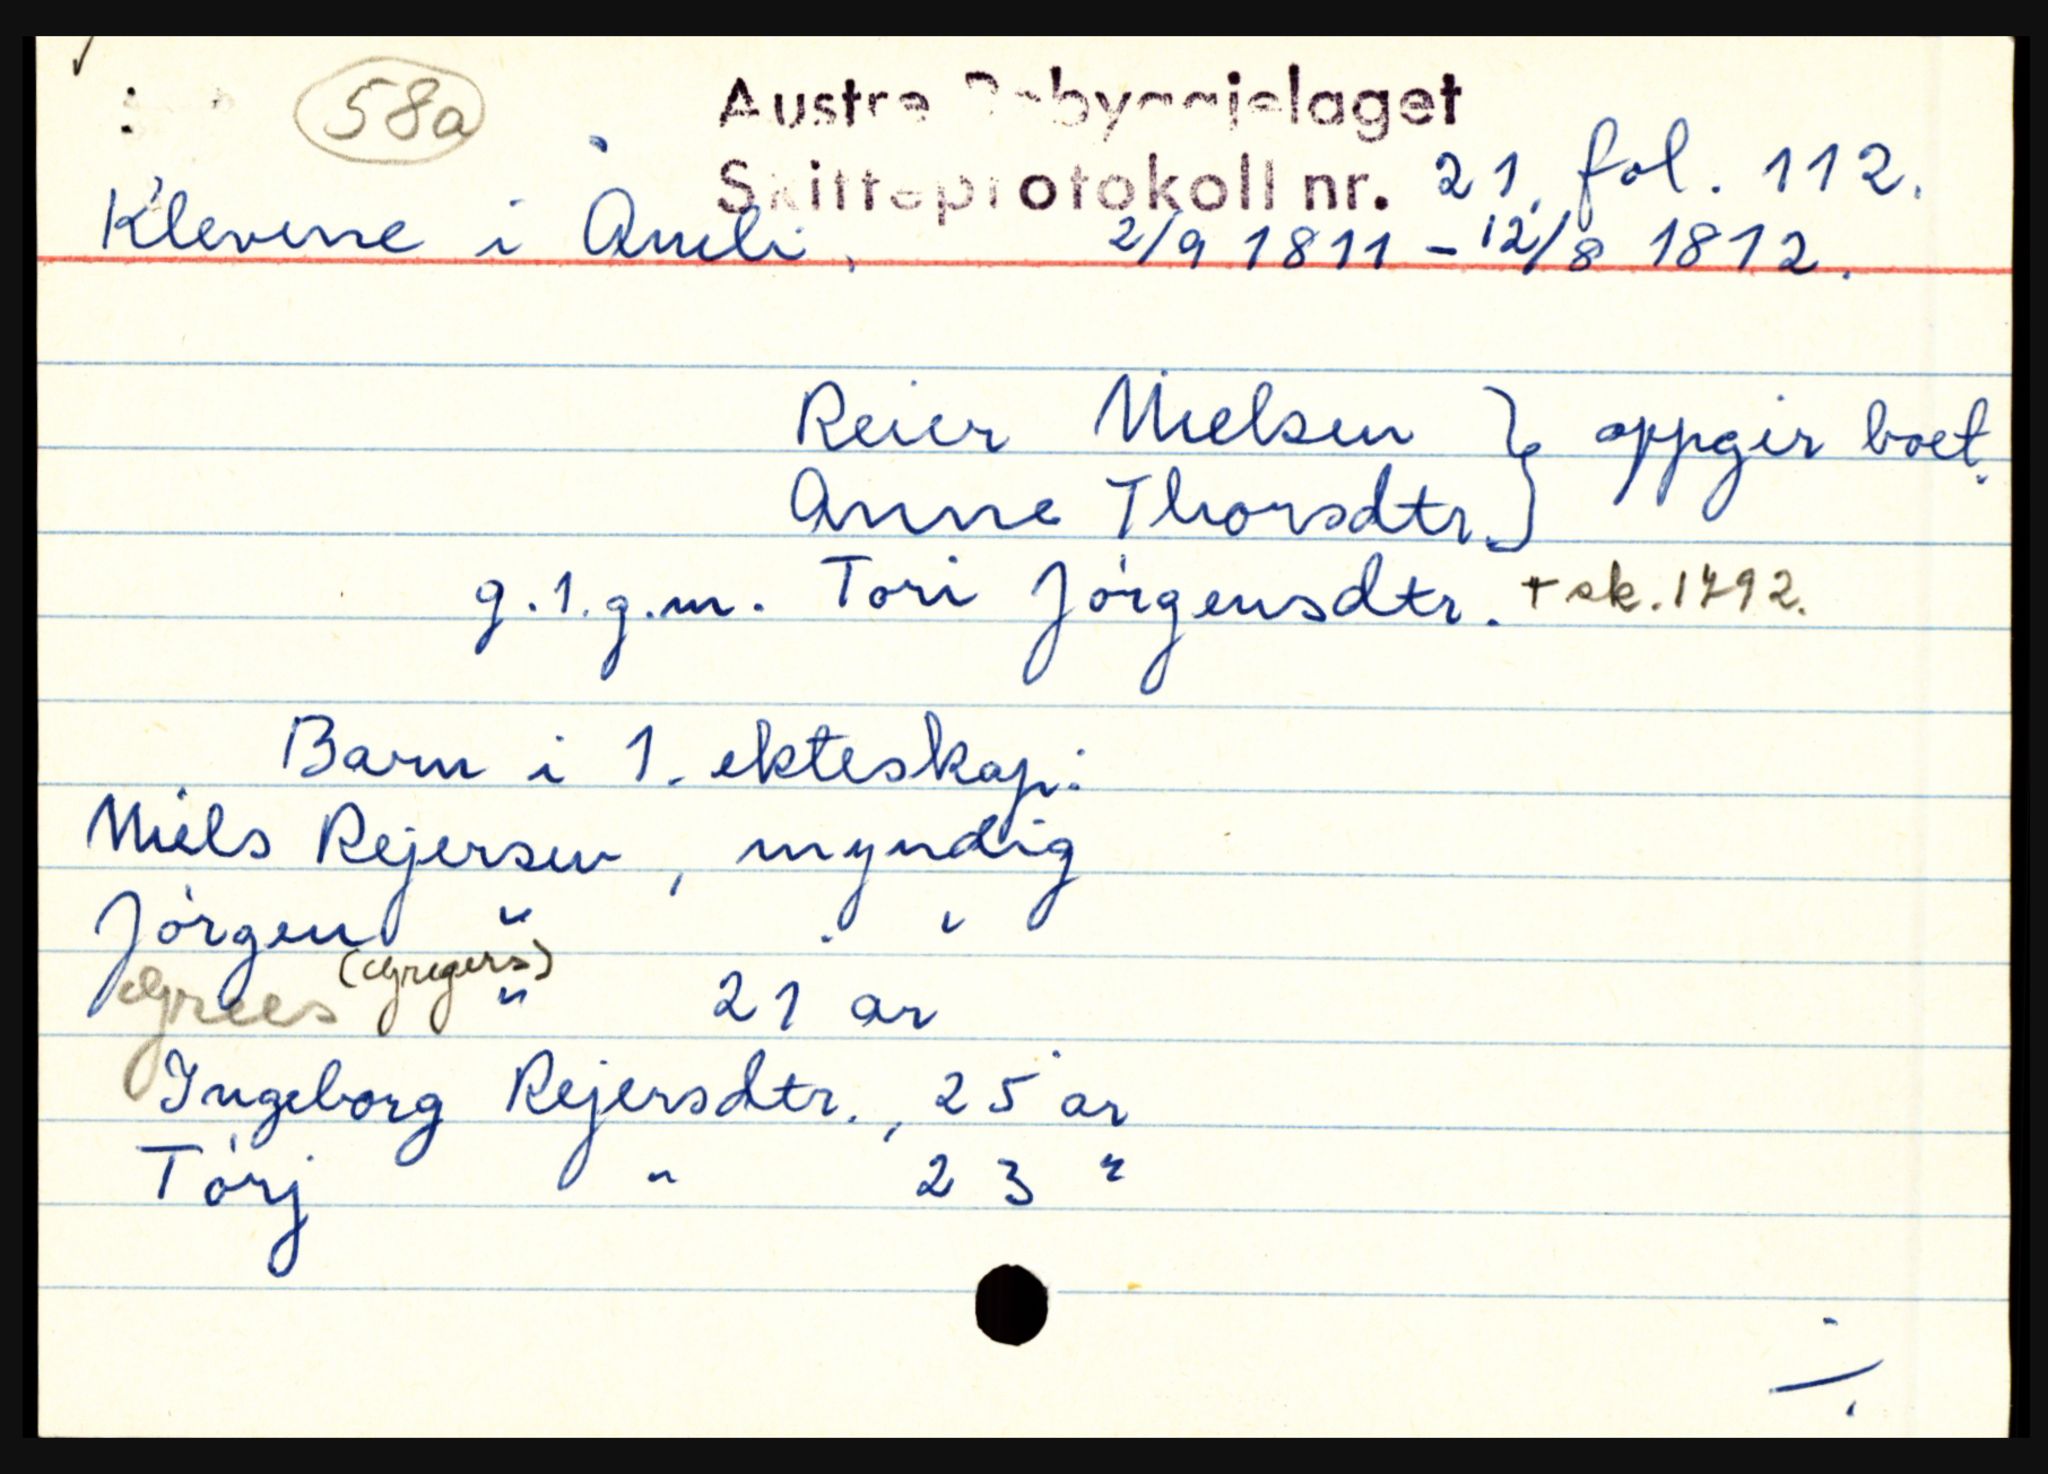 58a
Austre Rebyggjelaget
Skifteprotokoll nr. 21. fol. 112.
Klevene i Åmli, 2/9 1811 - 12/8 1812.
Reier Nielsen } oppgir boet.
Anne Thorsdtr. }
g.1.g.m. Tori Jörgensdtr. + sk. 1792.
Barn i 1. ekteskap:
Niels Rejersen, myndig
Jörgen " "
(Gregers)
Grees " 21 år
Ingeborg Rejersdtr., 25 år
Törj " 23 "
./.